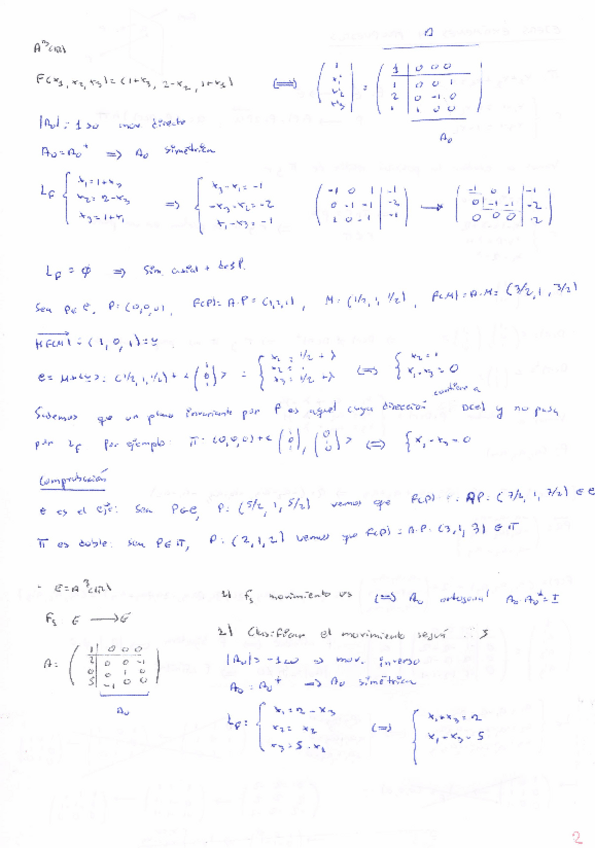 A³(ℝ)
F(x₁, x₂, x₃) = (1+x₃, 2-x₂, 1+x₁) ⟺ (1 x₁ x₂ x₃) = (1 0 0 0 | 1 0 0 1 | 2 0 -1 0 | 1 1 0 0)
A
A₀
|A₀| = 1 >0 mov. directo
A₀ = A₀ᵗ ⟹ A₀ simétrica
L_F { x₁ = 1+x₃
x₂ = 2-x₂
x₃ = 1+x₁
⟹ { x₃-x₁ = -1
-x₂-x₂ = -2
x₁-x₃ = -1
(-1 0 1 | -1
0 -1 -1 | -2
1 0 -1 | -1)
⟶ (-1 0 1 | -1
0 -1 -1 | -2
0 0 0 | -2)
L_F = ∅ ⟹ Sim. axial + desp.
Sea P∈E, P=(0,0,0), F(P)=A·P=(1,2,1), M=(1/2, 1, 1/2), F(M)=A·M=(3/2, 1, 3/2)
MF(M) = (1, 0, 1) = u
e = M+<u> = (1/2, 1, 1/2) + <(1 0 1)> = { x₁ = 1/2 + λ
x₂ = 1
x₃ = 1/2 + λ
⟺ { x₂ = 1
x₁-x₃ = 0
contiene a
Sabemos que un plano invariante por F es aquel cuya dirección D(e) y no pasa
por L_F Por ejemplo: π = (0,0,0)+<(1 0 1), (0 1 0)> ⟺ { x₁-x₃ = 0
Comprobación
e es el eje: Sea P∈e, P=(5/2, 1, 5/2) vemos que F(P) = A·P = (7/2, 1, 7/2) ∈ e
π es doble: sea P∈π, P=(2,1,2) vemos que F(P) = A·P = (3,1,3) ∈ π
- E=A³(ℝ)
F_s E ⟶ E
A = (1 0 0 0
2 0 0 -1
0 0 1 0
s -1 0 0)
A₀
1) F_s movimiento vs ⟺ A₀ ortogonal A₀·A₀ᵗ = I
2) Clasificar el movimiento según s
|A₀| = -1 <0 ⟹ mov. inverso
A₀ = A₀ᵗ ⟹ A₀ simétrica
L_F: { x₁ = 2-x₃
x₂ = x₂
x₃ = s-x₁
⟺ { x₁+x₃ = 2
x₁+x₃ = s
2